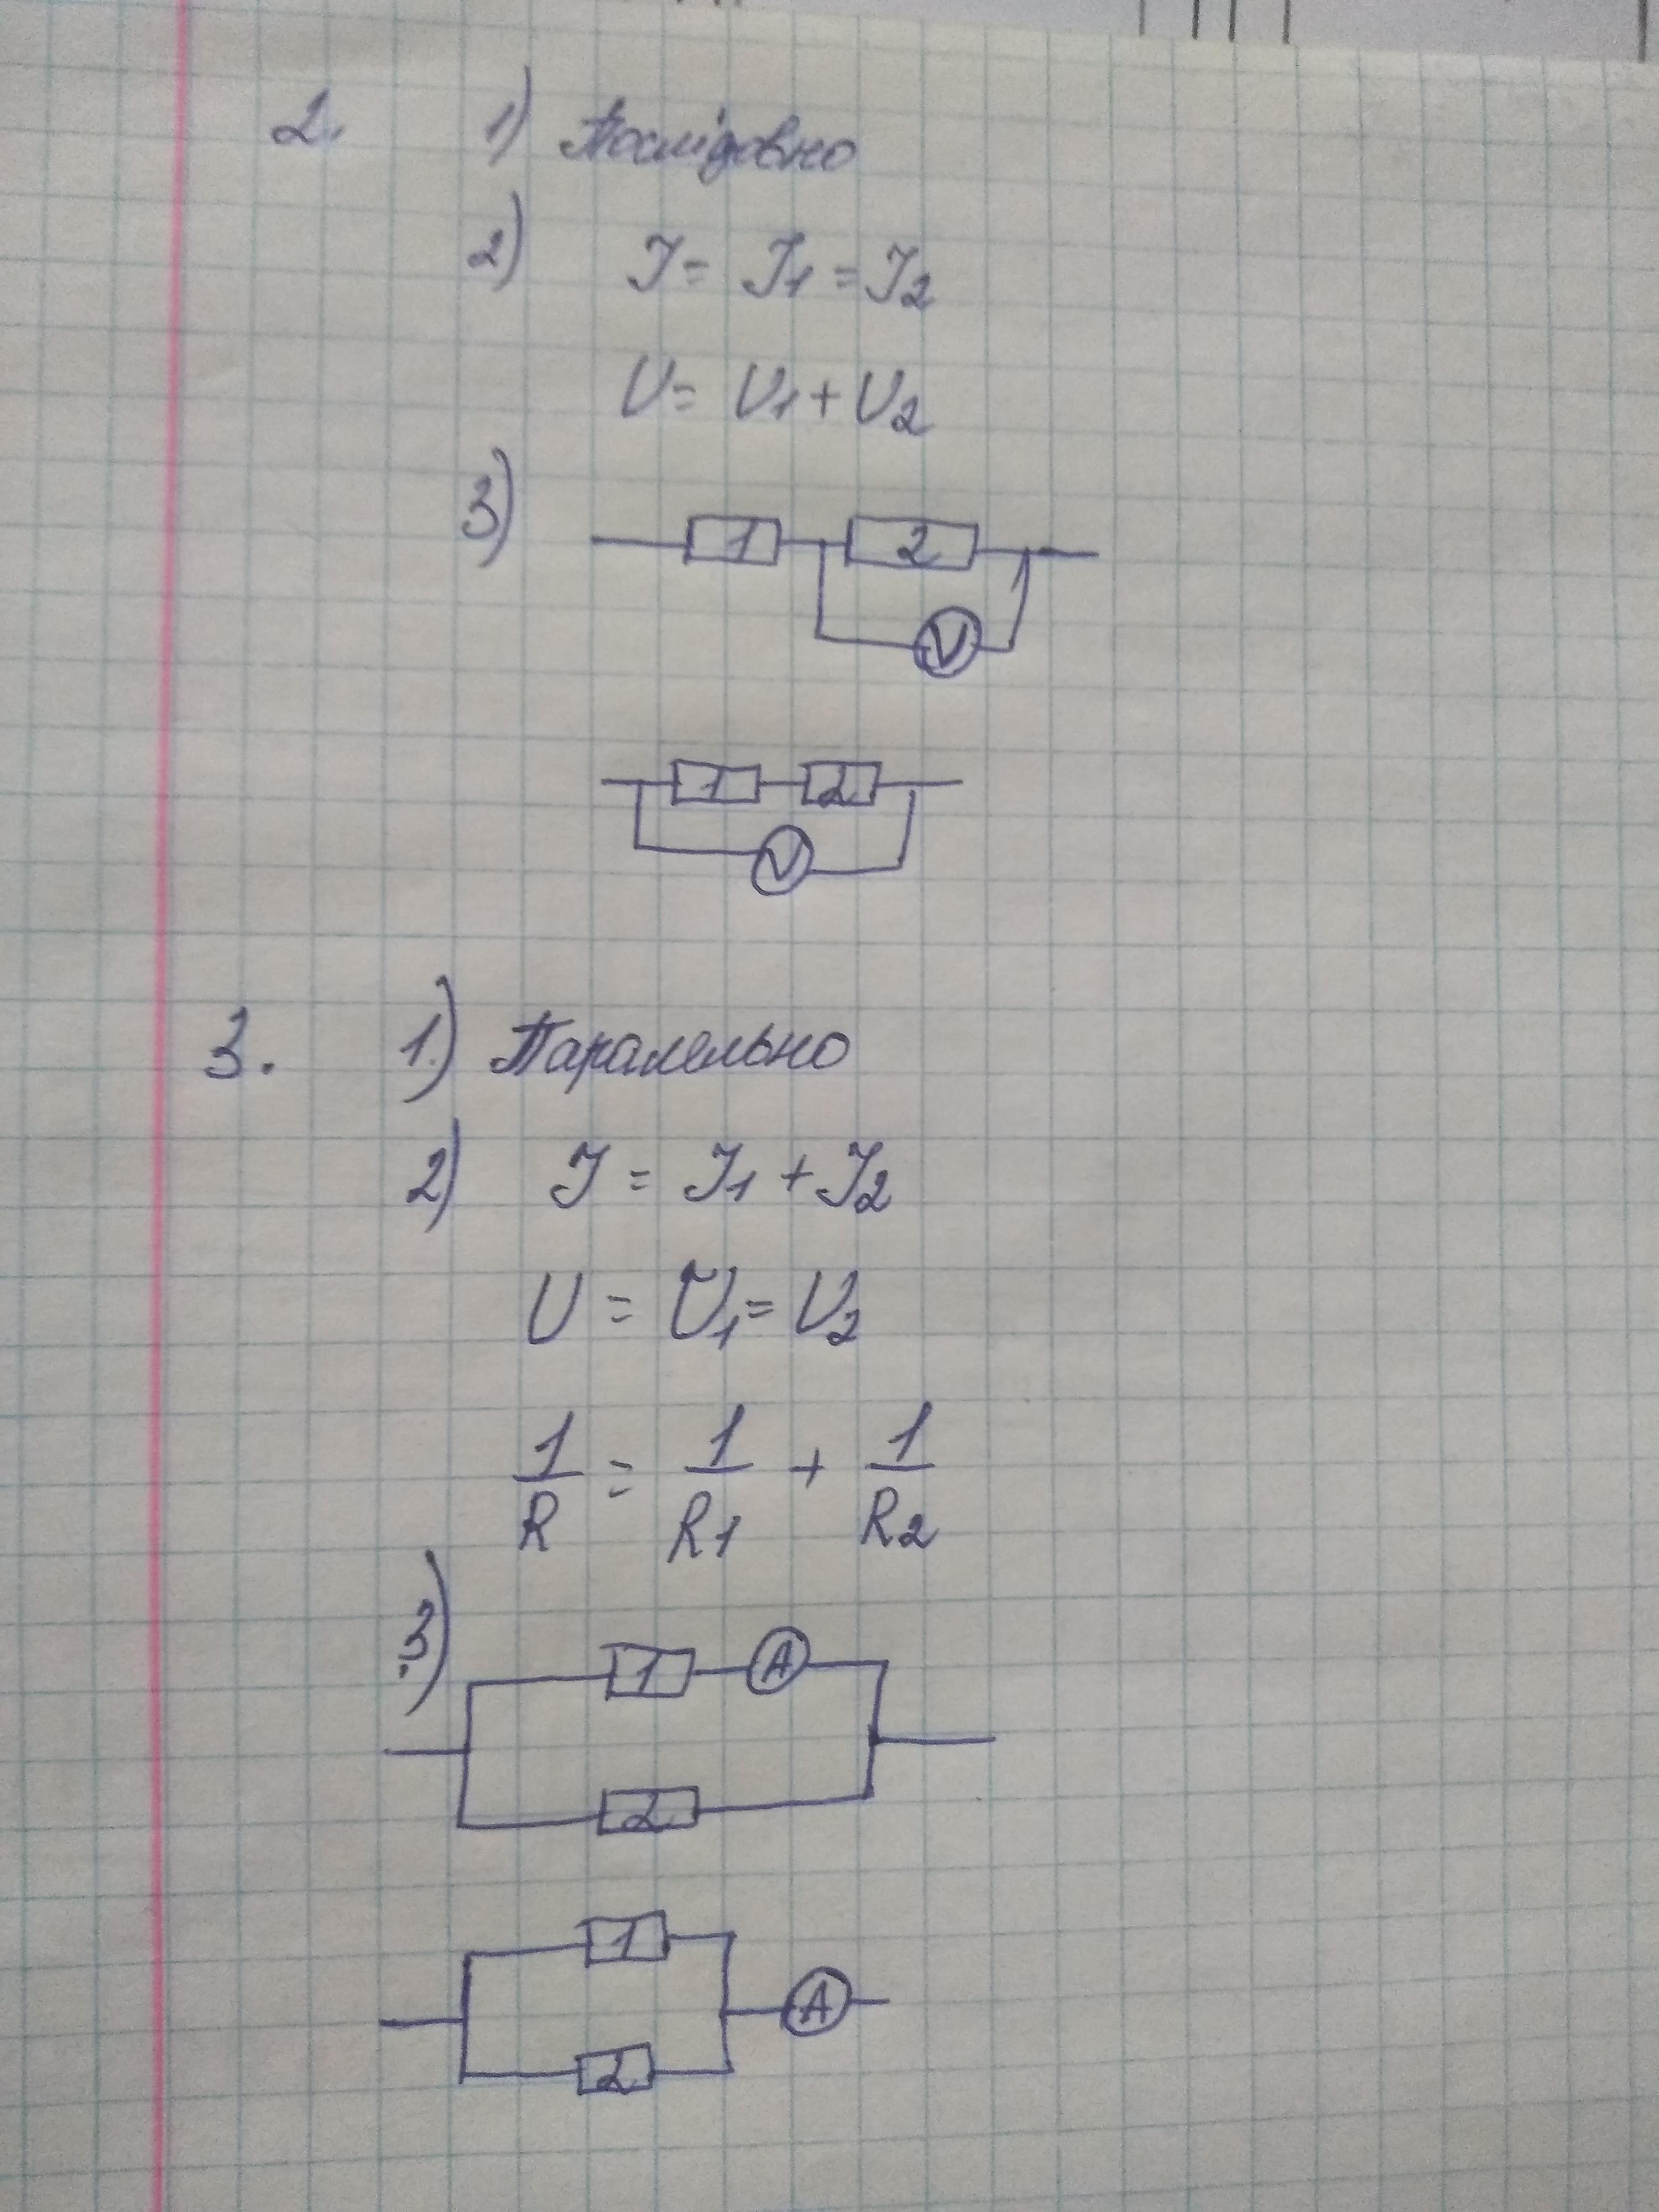 2. 1) Послідовно
2) I = I1 = I2
U = U1 + U2
3) 1 2
V
1 2
V
3. 1.) Паралельно
2) I = I1 + I2
U = U1 = U2
1/R = 1/R1 + 1/R2
3) 1 A
2
1
A
2